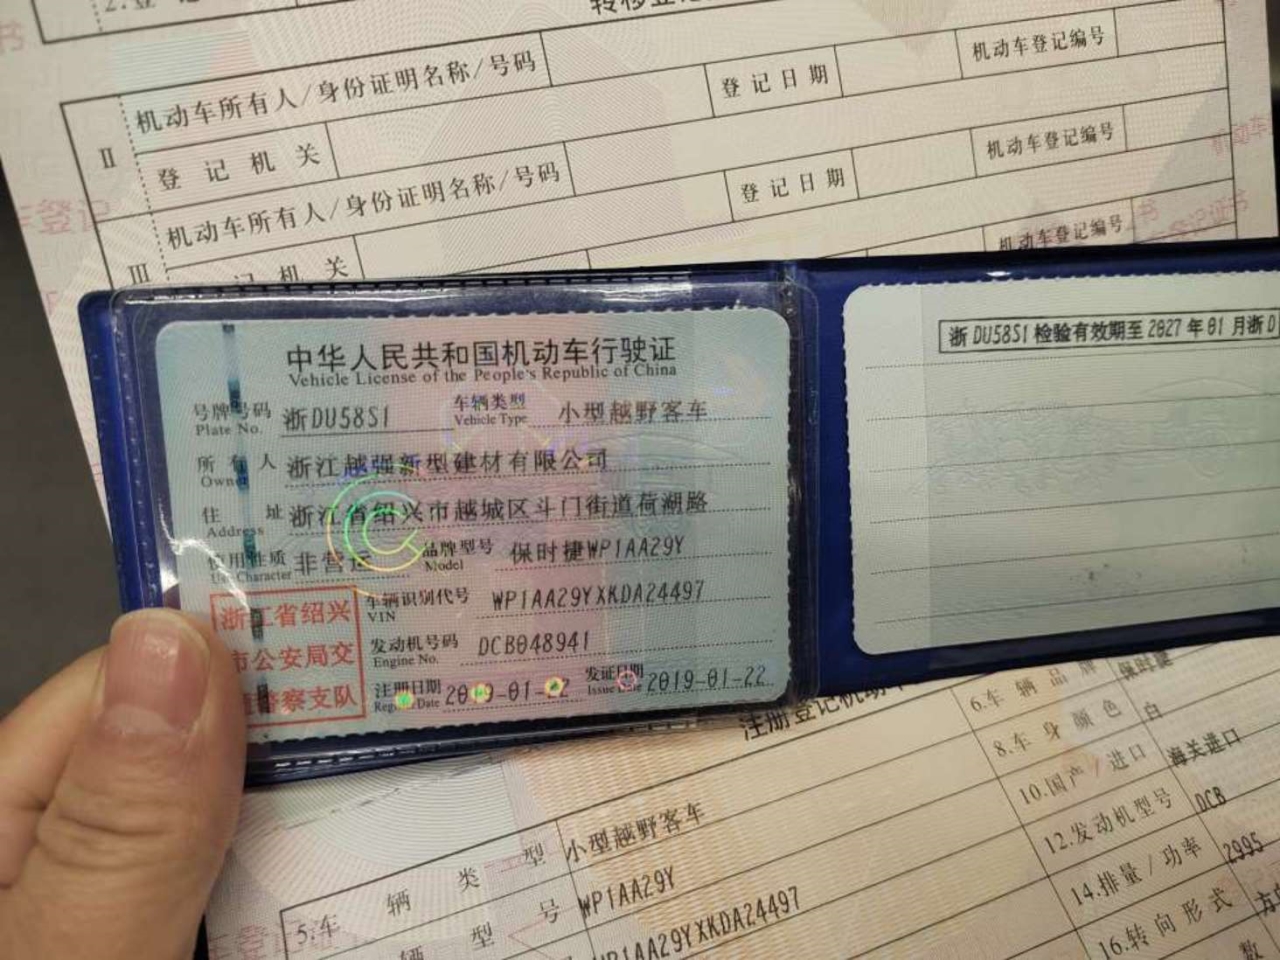 2.登记
转移登记
机动车所有人/身份证明名称/号码
II
登记机关
登记日期
机动车登记编号
机动车所有人/身份证明名称/号码
III
记机关
登记日期
机动车登记编号
机动车登记编号
中华人民共和国机动车行驶证
Vehicle License of the People's Republic of China
号牌号码 浙DU58S1 车辆类型 小型越野客车
Plate No. Vehicle Type
所有人 浙江越强新型建材有限公司
Owner
住址 浙江省绍兴市越城区斗门街道荷湖路
Address
使用性质 非营运 品牌型号 保时捷WP1AA29Y
Use Character Model
浙江省绍兴
市公安局交
警察支队
车辆识别代号 WP1AA29YXKDA24497
VIN
发动机号码 DCB048941
Engine No.
注册日期 2019-01-22 发证日期 2019-01-22
Register Date Issue Date
浙DU58S1检验有效期至2027年01月浙D
注册登记机动车
5.车辆类型 小型越野客车
辆型号 WP1AA29Y
WP1AA29YXKDA24497
6.车辆品牌 保时捷
8.车身颜色 白
10.国产/进口 海关进口
12.发动机型号 DCB
14.排量/功率 2995
16.转向形式 方
数